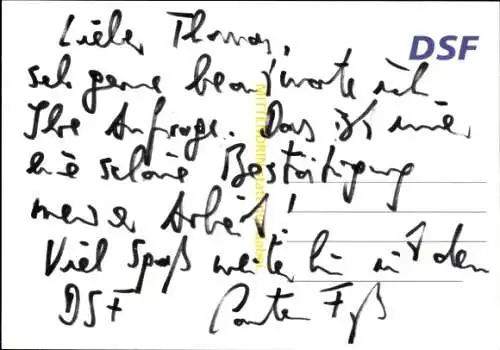 Lieber Thomas,
DSF
sehr gerne beantworte ich
Ihre Anfrage. Das ist immer
eine schöne Bestätigung
meiner Arbeit!
Viel Spaß weiterhin mit dem
DSF